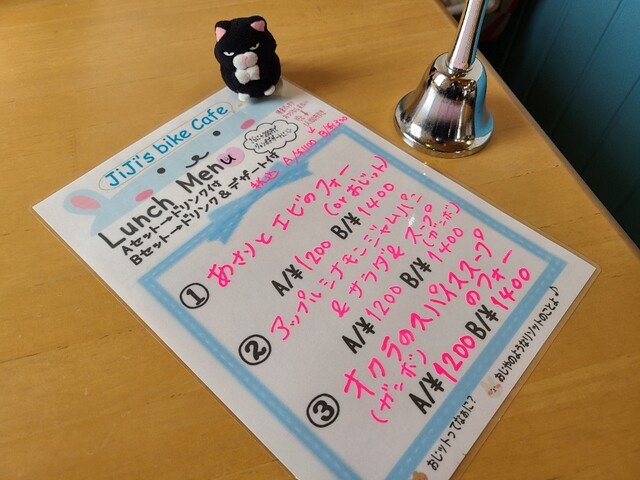 JiJi's bike Cafe
Lunch Menu
Aセット→ドリンク付
Bセット→ドリンク&デザート付
A/¥1100 B/¥1300
① あさりとエビのフォー
(orおじット)
A/¥1200 B/¥1400
② アップルシナモンジャムパニーニ
&サラダ&スープ
(ガンボ)
A/¥1200 B/¥1400
③ オクラのスパイススープ
(ガンボ) のフォー
A/¥1200 B/¥1400
おじットってなぁに?
おじやのようなリゾットのことよ♪